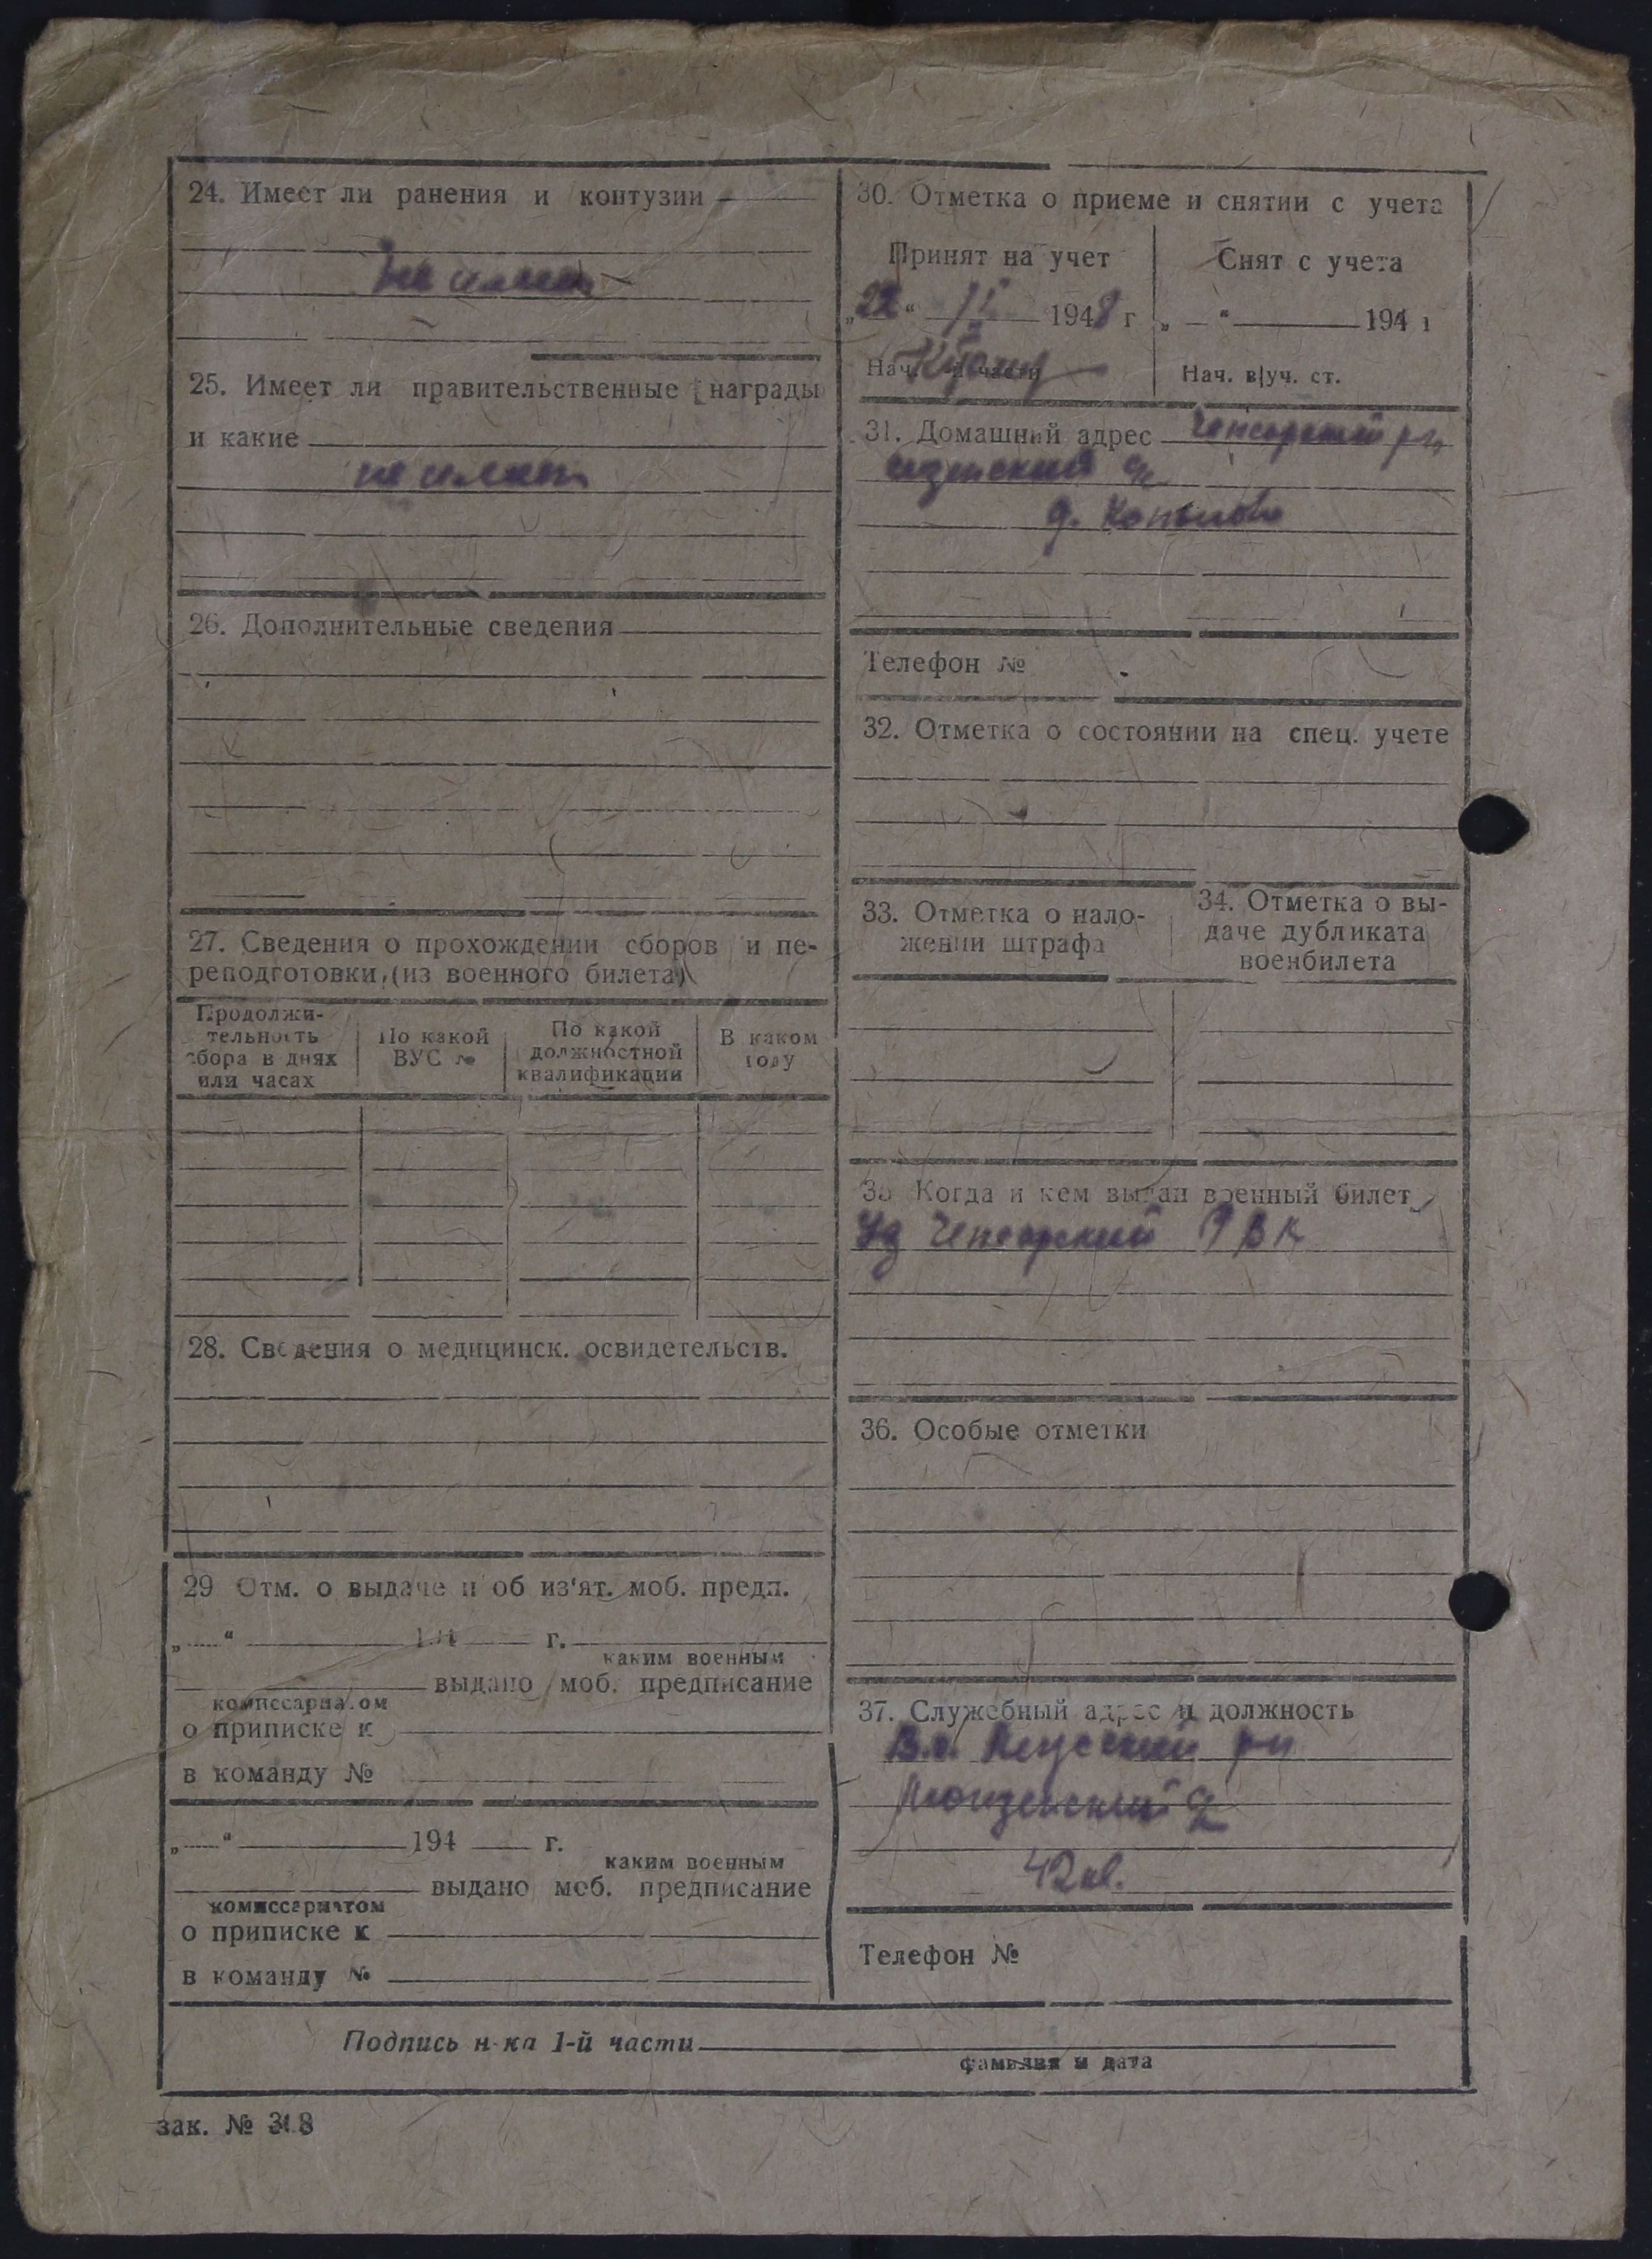 24. Имеет ли ранения и контузии
не имеет
25. Имеет ли правительственные награды
и какие
не имеет
26. Дополнительные сведения
27. Сведения о прохождении сборов и пе-
реподготовки (из военного билета)
Продолжи-
тельность
сбора в днях
или часах
По какой
ВУС №
По какой
должностной
квалификации
В каком
году
28. Сведения о медицинск. освидетельств.
29 Отм. о выдаче и об из'ят. моб. предп.
„ “ 194 г.
каким военным
выдано моб. предписание
комиссариатом
о приписке к
в команду №
„ “ 194 г.
каким военным
выдано моб. предписание
комиссариатом
о приписке к
в команду №
30. Отметка о приеме и снятии с учета
Принят на учет
„22“ 1948 г
Нач. части
Снят с учета
„ “ 194 г
Нач. в|уч. ст.
31. Домашний адрес
д.
Телефон №
32. Отметка о состоянии на спец. учете
33. Отметка о нало-
жении штрафа
34. Отметка о вы-
даче дубликата
военбилета
35 Когда и кем выдан военный билет
РВК
36. Особые отметки
37. Служебный адрес и должность
Телефон №
Подпись н-ка 1-й части
фамилия и дата
зак. № 318